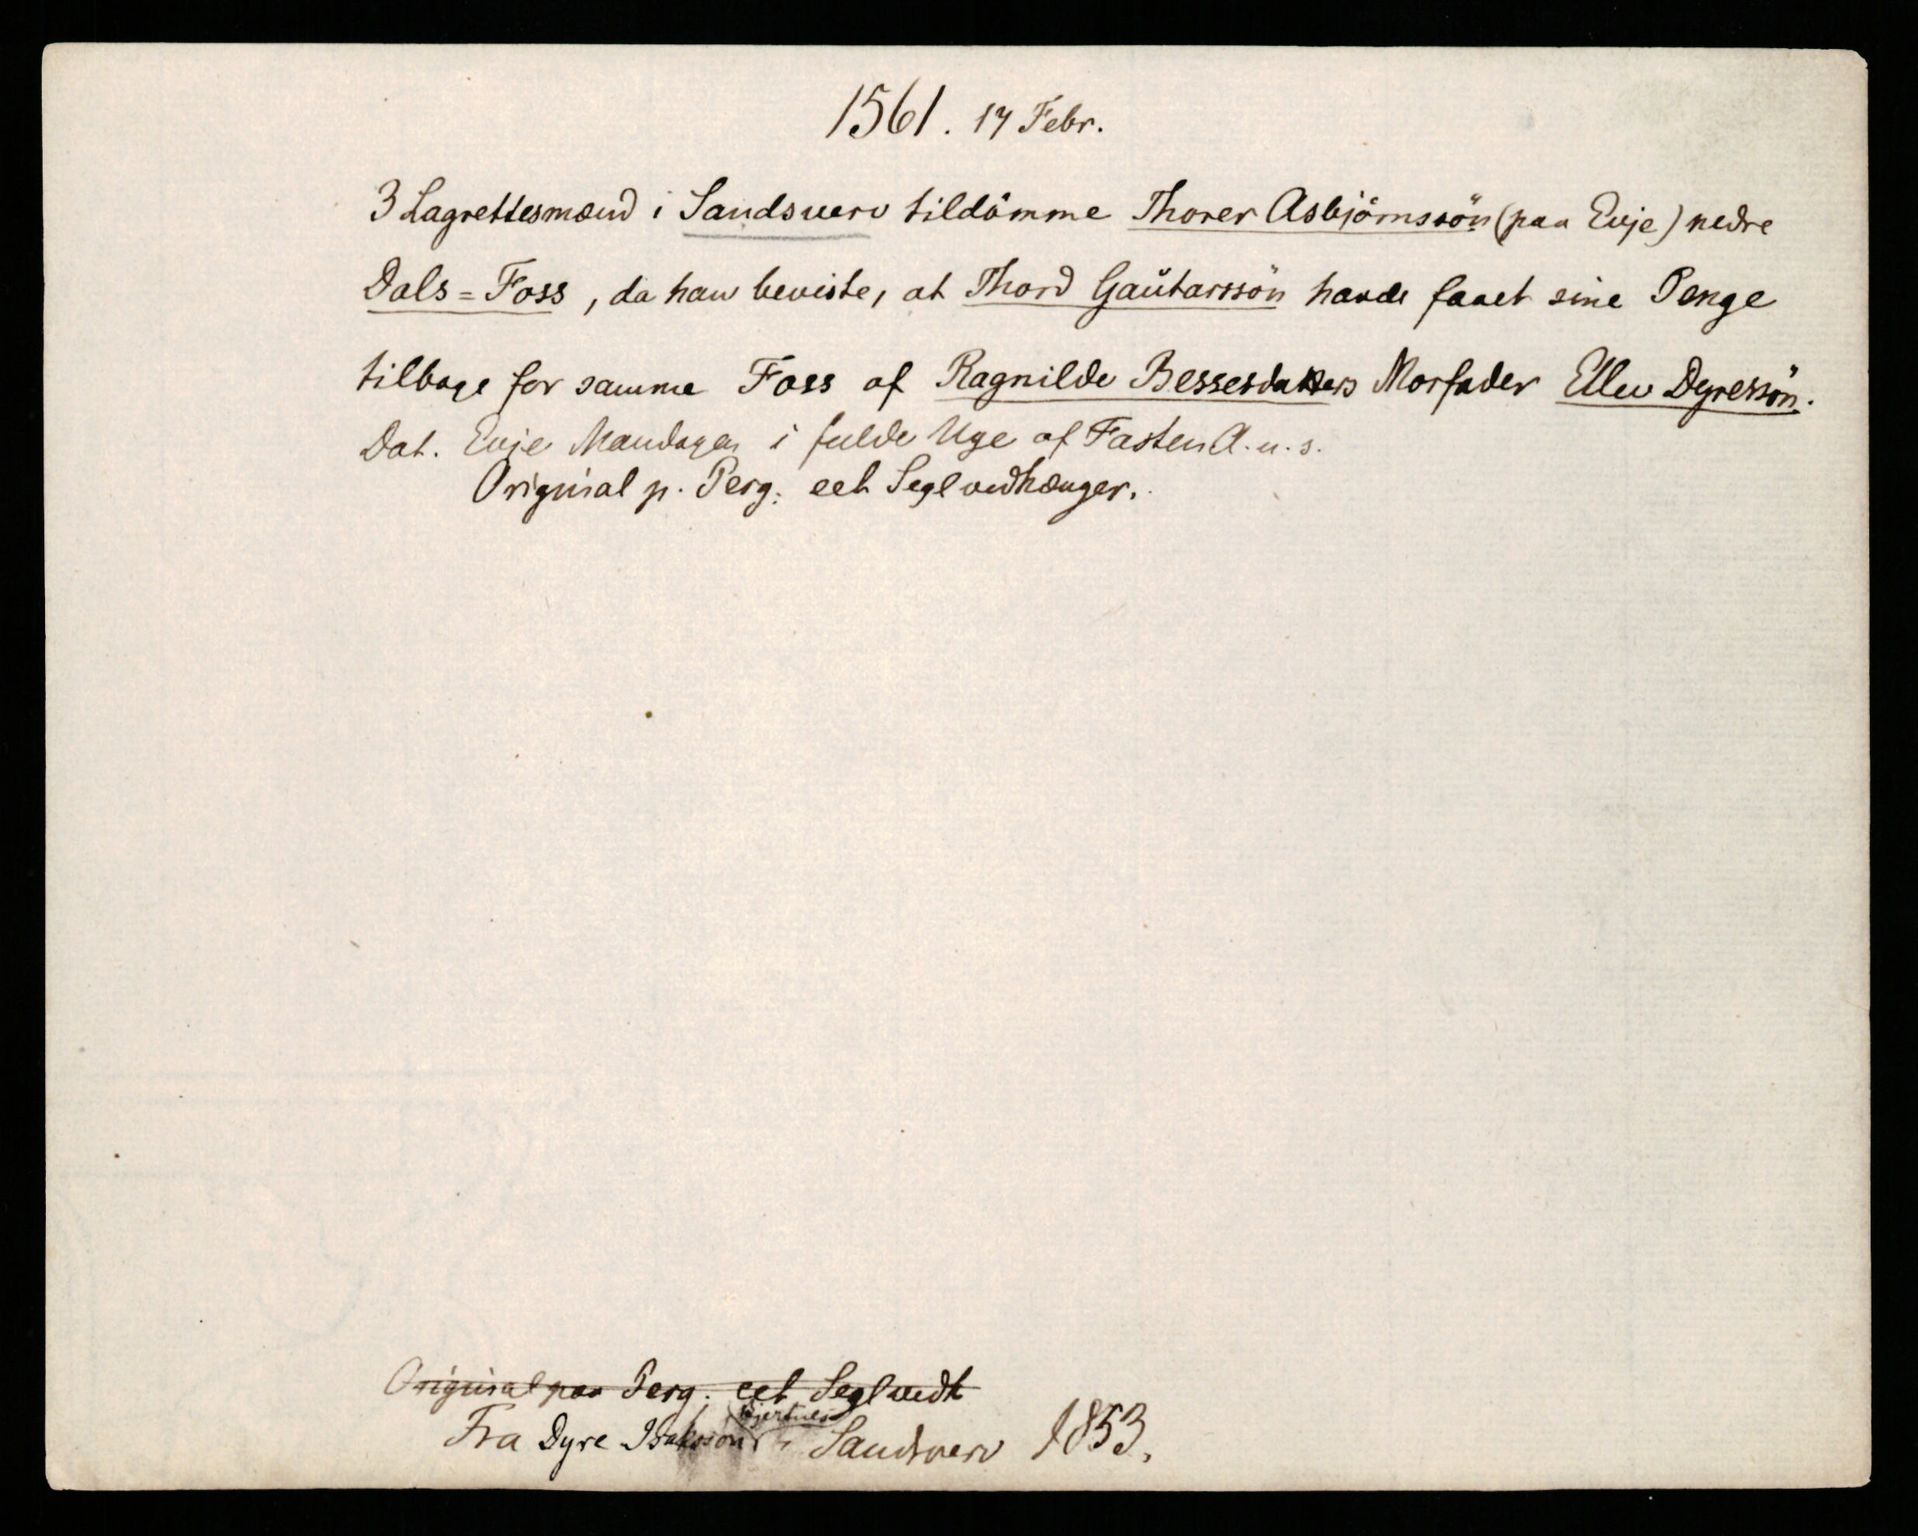 1561. 17 Febr.
3 Lagrettesmænd i Sandsverv tildömme Thorer Asbjörnssön (paa Evje) nedre
Dals=Foss, da han beviste, at Thord Gaŭtarssön havde faaet sine Penge
tilbage for samme Foss af Ragnilde Bessesdatters Morfader Ellev Dyressön.
Dat. Evje Mandagen i fulde Uge af Fasten A. u. s.
Original p. Perg. eet Segl vedhænger.
Original paa Perg. eet Segl vedh
Bjertnes
Fra Dyre Isaksson i Sandsverv 1853.